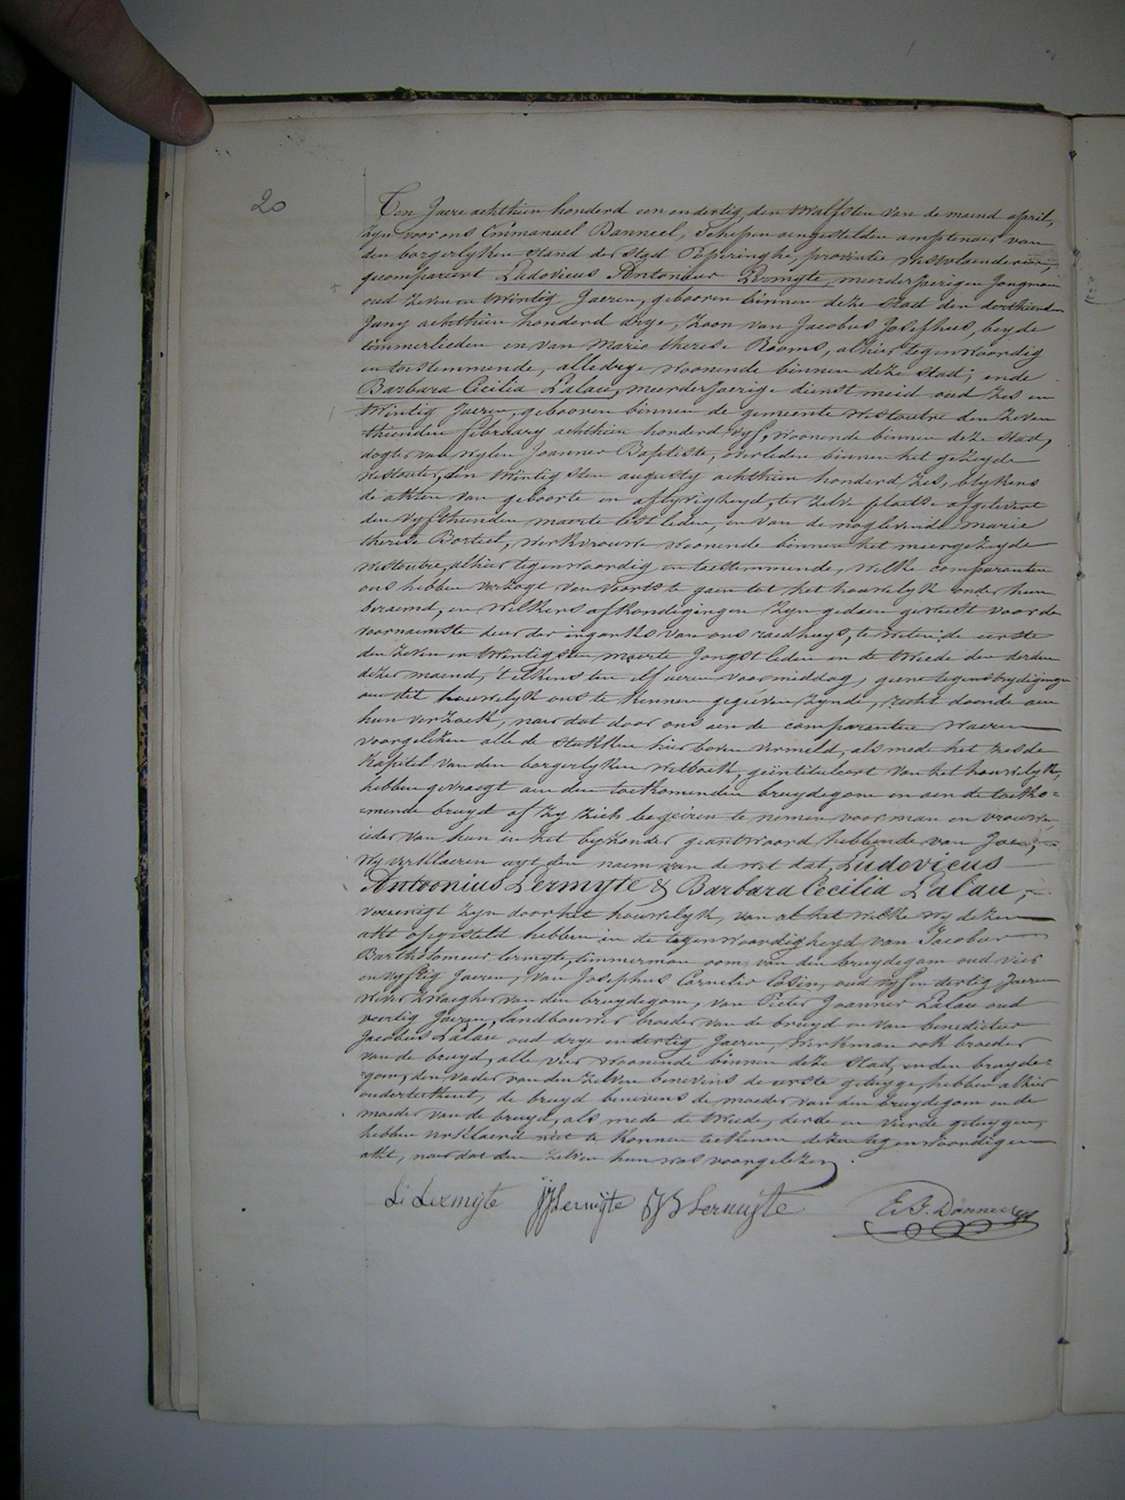 20
Ten Jaere achthien honderd een en dertig den Twalfsten van de maend april,
zyn voor ons Emmanuel Danneel, schepen aengestelden amptenaer van
den borgerlyken stand der stad Poperinghe, provintie Westvlaenderen,
gecompareert Ludovicus Antonius Lermyte, meerderjaerigen jongman
oud zeven en twintig Jaeren, gebooren binnen deze stad den derthienden
Juny achthien honderd drye, zoon van Jacobus Josephus, beyde
timmerlieden en van Marie therese Rooms, alhier tegenwoordig
en toestemmende, alledrye woonende binnen deze stad; ende
Barbara Cecilia Lalau, meerderjaerige dienstmeid oud zes en
twintig Jaeren, gebooren binnen de gemeente Westoutre den zeven
thienden february achthien honderd vyf, woonende binnen deze stad,
dogter van wylen Joannes Baptiste, overleden binnen het gezeyde
Westoutre, den twintigsten augusty achthien honderd zes, blykens
de akten van geboorte en aflyvigheyd, ter zelve plaetse afgelevert
den vyfthienden maerte lest leden, en van de nog levende Marie
therese Borteel, werkvrouwe woonende binnen het meergezeyde
Westoutre, alhier tegenwoordig en toestemmende, welke comparanten
ons hebben verzogt van voorts te gaen tot het houwelyk onder hun
beraemd, en welkers afkondigingen zyn gedaen geweest voor de
voornaemste deur der ingank van ons raedhuys, te weten: de eerste
den zeven en twintigsten maerte Jongstleden en de tweede den derden
dezer maend, t'elkens ten elf ueren voormiddag, geene tegenstrydigingen
aen dit houwelyk ons te kennen gegeven zynde, recht doende aen
hun verzoek, naer dat door ons aen de comparanten waeren
voorgelezen alle de stukken hier boven vermeld, als mede het zesde
kapitel van den borgerlyken wetboek, geïntituleert van het houwelyk,
hebben gevraegt aen den toekomenden bruydegom en aen de toeko=
=mende bruyd of zy zich begeiren te nemen voor man en vrouwe
ieder van hun in het byzonder geantwoord hebbende van Jae,
wy verklaeren uyt den naem van de wet dat, Ludovicus
Antoonius Lermyte & Barbara Cecilia Lalau,
vereenigt zyn door het houwelyk, van al het welke wy dezen
akt opgesteld hebben in de tegenwoordigheyd van Jacobus
Bartholomeus Lermyte, timmerman oom van den bruydegom oud vier
en vyftig Jaeren, van Josephus Cornelis Cosin, oud vyf en dertig Jaeren
wever zwaegher van den bruydegom, van Pieter Joannes Lalau oud
veertig Jaeren, landbouwer broeder van de bruyd en van benedictus
Jacobus Lalau oud drye en dertig Jaeren, werkman ook broeder
van de bruyd, alle vier woonende binnen deze stad, en den bruyde=
gom, den vader van den zelven benevens de eerste getuyge, hebben alhier
onderteekent, de bruyd benevens de moeder van den bruydegom en de
moeder van de bruyd, als mede de tweede, derde en vierde getuygen,
hebben verklaerd niet te konnen teekenen dezen tegenwoordigen
akt, naer dat den zelven hun was voorgelezen.
L: Lermyte JJ Lermyte JB Lermyte E. F. Danneel